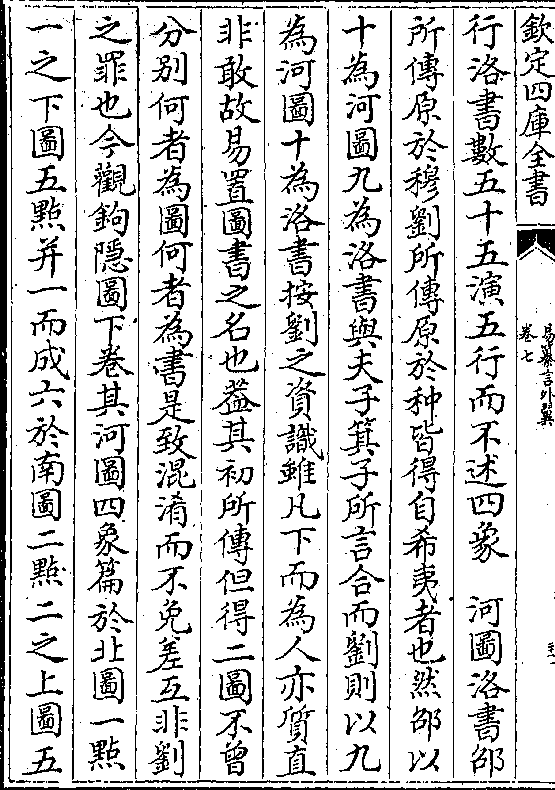 欽定四庫全書
易纂言外翼
卷七
行洛書數五十五演五行而不述四象　河圖洛書邵
所傳原於穆劉所傳原於种皆得自希夷者也然邵以
十為河圖九為洛書與夫子箕子所言合而劉則以九
為河圖十為洛書按劉之資識雖凡下而為人亦質直
非敢故易置圖書之名也葢其初所傳但得二圖不曾
分别何者為圖何者為書是致混淆而不免差互非劉
之罪也今觀鉤隠圖下卷其河圖四象篇於北圖一㸃
一之下圖五㸃并一而成六於南圖二㸃二之上圖五